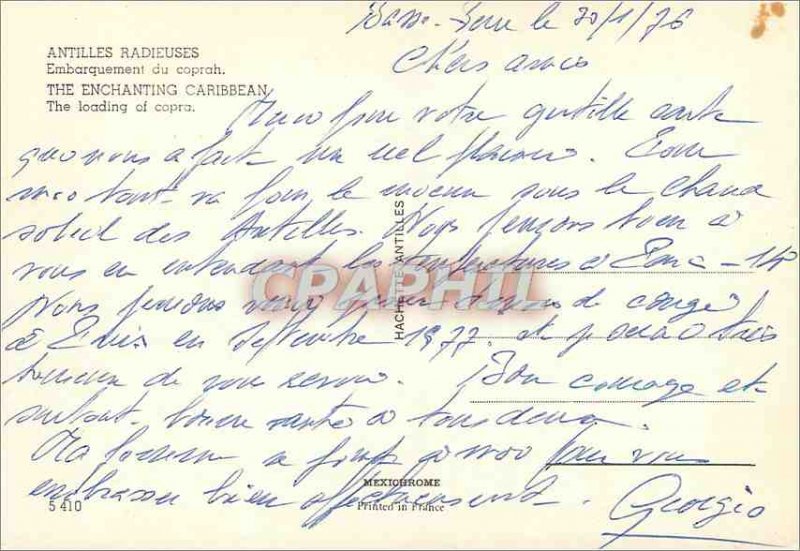 Basse-Terre le 30/1/76
ANTILLES RADIEUSES
Embarquement du coprah.
Chers amis
THE ENCHANTING CARIBBEAN
The loading of copra.
Merci pour votre gentille carte
qui nous a fait un réel plaisir. Pour
moi tout va pour le mieux sous le chaud
soleil des Antilles. Nous pensons bien à
vous en entendant les températures à -14
Nous pensons venir passer de congé
à en Septembre 1977. et serai très
heureux de vous revoir. Bon courage et
surtout bonne santé à tous deux.
Ma femme se joint à moi pour vous
embrasser bien affectueusement.
Georgio
HACHETTE ANTILLES
CPAPHIL
MEXICHROME
5 410
Printed in France